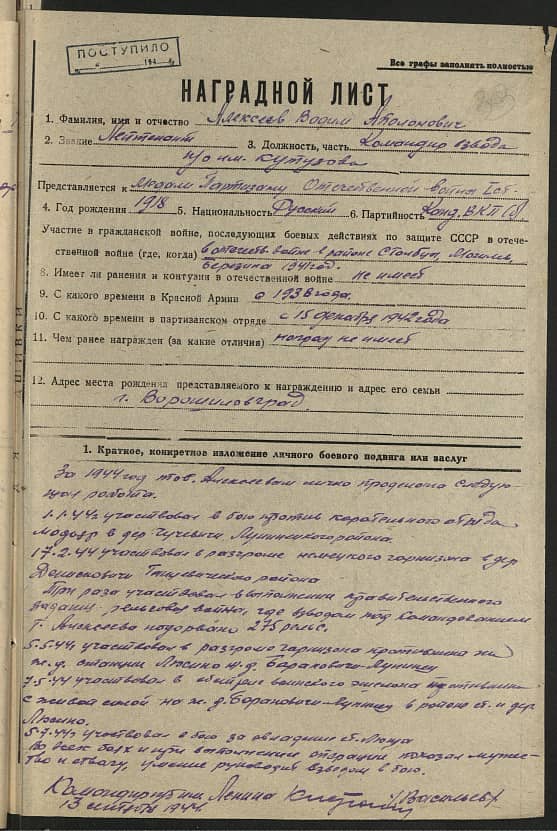 ПОСТУПИЛО
194
Все графы заполнять полностью
НАГРАДНОЙ ЛИСТ
1. Фамилия, имя и отчество Алексеев Вадим Аполонович
2. Звание Лейтенант 3. Должность, часть Командир взвода
п/о им. Кутузова
Представляется к медали Партизану Отечественной войны I ст-
4. Год рождения 1918 5. Национальность Русский 6. Партийность Канд. ВКП(б)
Участие в гражданской войне, последующих боевых действиях по защите СССР в отече-
ственной войне (где, когда) в отечеств войне в районе Столбцы, Могилев,
Березина 1941 год.
8. Имеет ли ранения и контузии в отечественной войне не имеет
9. С какого времени в Красной Армии с 1938 года.
10. С какого времени в партизанском отряде с 15 декабря 1942 года
11. Чем ранее награжден (за какие отличия) наград не имеет
12. Адрес места рождения представляемого к награждению и адрес его семьи
г. Ворошиловград.
1. Краткое, конкретное изложение личного боевого подвига или заслуг
За 1944 год тов. Алексеевым лично проделана следую-
щая работа.
1.1.44г. участвовал в бою против карательного отряда
в дер Чучевичи Лунинецкого района.
17.2.44 участвовал в разгроме немецкого гарнизона в дер
Денисковичи Ганцевичского района
Три раза участвовал в выполнении правительственного
задания - рельсовая война, где взводом под командованием
т. Алексеева подорвано 275 рельс.
5.5.44г. участвовал в разгроме гарнизона противника на
ж.д. станции Люсино ж.д. Барановичи-Лунинец
7.5.44 участвовал в обстреле воинского эшелона противника
с живой силой на ж.д. Барановичи-Лунинец в районе ст. и дер
Люсино.
5.7.44г участвовал в бою за овладение ст. Люща
Во всех боях и при выполнении операции показал муже-
ство и отвагу, умение руководить взводом в бою.
Командир им Ленина (Васильев)
13 сентября 1944.